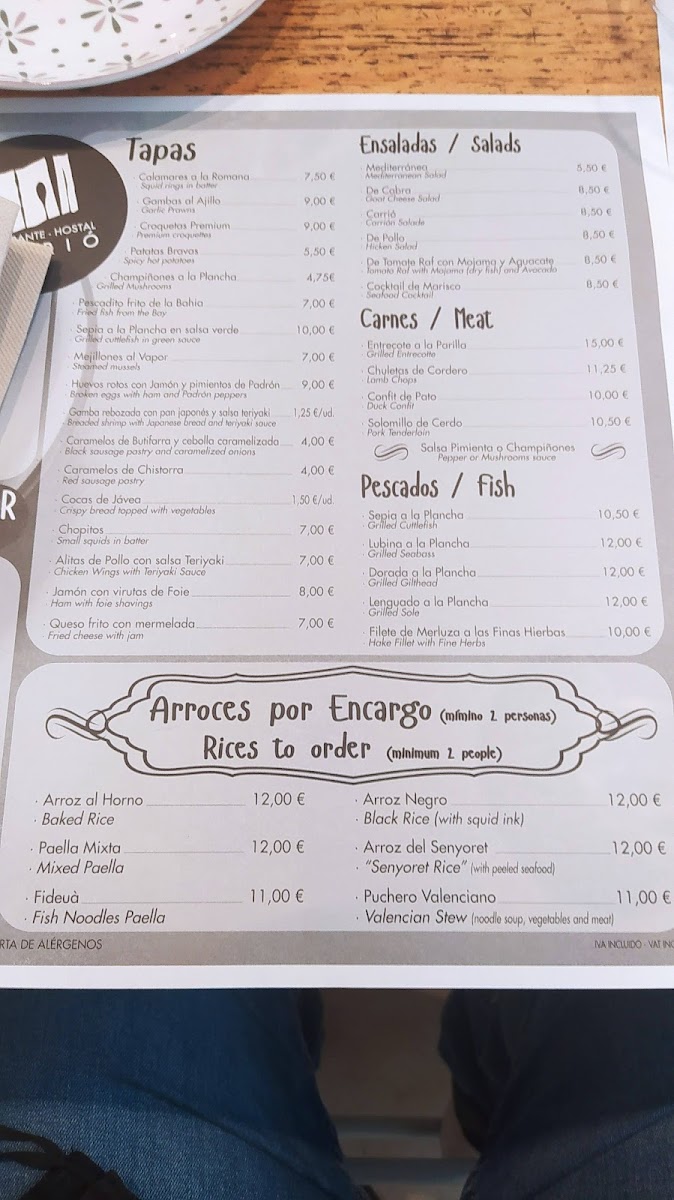 ANTE · HOSTAL
R
Tapas
· Calamares a la Romana 7,50 €
Squid rings in batter
· Gambas al Ajillo 9,00 €
Garlic Prawns
· Croquetas Premium 9,00 €
Premium croquettes
· Patatas Bravas 5,50 €
Spicy hot potatoes
· Champiñones a la Plancha 4,75€
Grilled Mushrooms
· Pescadito frito de la Bahia 7,00 €
Fried fish from the Bay
· Sepia a la Plancha en salsa verde 10,00 €
Grilled cuttlefish in green sauce
· Mejillones al Vapor 7,00 €
Steamed mussels
· Huevos rotos con Jamón y pimientos de Padrón 9,00 €
Broken eggs with ham and Padrón peppers
· Gamba rebozada con pan japonés y salsa teriyaki 1,25 €/ud.
Breaded shrimp with Japanese bread and teriyaki sauce
· Caramelos de Butifarra y cebolla caramelizada 4,00 €
Black sausage pastry and caramelized onions
· Caramelos de Chistorra 4,00 €
Red sausage pastry
· Cocas de Jávea 1,50 €/ud.
Crispy bread topped with vegetables
· Chopitos 7,00 €
Small squids in batter
· Alitas de Pollo con salsa Teriyaki 7,00 €
Chicken Wings with Teriyaki Sauce
· Jamón con virutas de Foie 8,00 €
Ham with foie shavings
· Queso frito con mermelada 7,00 €
Fried cheese with jam
Ensaladas / Salads
· Mediterránea 5,50 €
Mediterranean Salad
· De Cabra 8,50 €
Goat Cheese Salad
· Carrió 8,50 €
Carrión Salade
· De Pollo 8,50 €
Hicken Salad
· De Tomate Raf con Mojama y Aguacate 8,50 €
Tomato Raf with Mojama (dry fish) and Avocado
· Cocktail de Marisco 8,50 €
Seafood Cocktail
Carnes / Meat
· Entrecote a la Parilla 15,00 €
Grilled Entrecotte
· Chuletas de Cordero 11,25 €
Lamb Chops
· Confit de Pato 10,00 €
Duck Confit
· Solomillo de Cerdo 10,50 €
Pork Tenderloin
Salsa Pimienta o Champiñones
Pepper or Mushrooms sauce
Pescados / Fish
· Sepia a la Plancha 10,50 €
Grilled Cuttlefish
· Lubina a la Plancha 12,00 €
Grilled Seabass
· Dorada a la Plancha 12,00 €
Grilled Gilthead
· Lenguado a la Plancha 12,00 €
Grilled Sole
· Filete de Merluza a las Finas Hierbas 10,00 €
Hake Fillet with Fine Herbs
Arroces por Encargo (mímino 2 personas)
Rices to order (minimum 2 people)
· Arroz al Horno 12,00 €
· Baked Rice
· Paella Mixta 12,00 €
· Mixed Paella
· Fideuà 11,00 €
· Fish Noodles Paella
· Arroz Negro 12,00 €
· Black Rice (with squid ink)
· Arroz del Senyoret 12,00 €
· "Senyoret Rice" (with peeled seafood)
· Puchero Valenciano 11,00 €
· Valencian Stew (noodle soup, vegetables and meat)
RTA DE ALÉRGENOS
IVA INCLUIDO · VAT INC